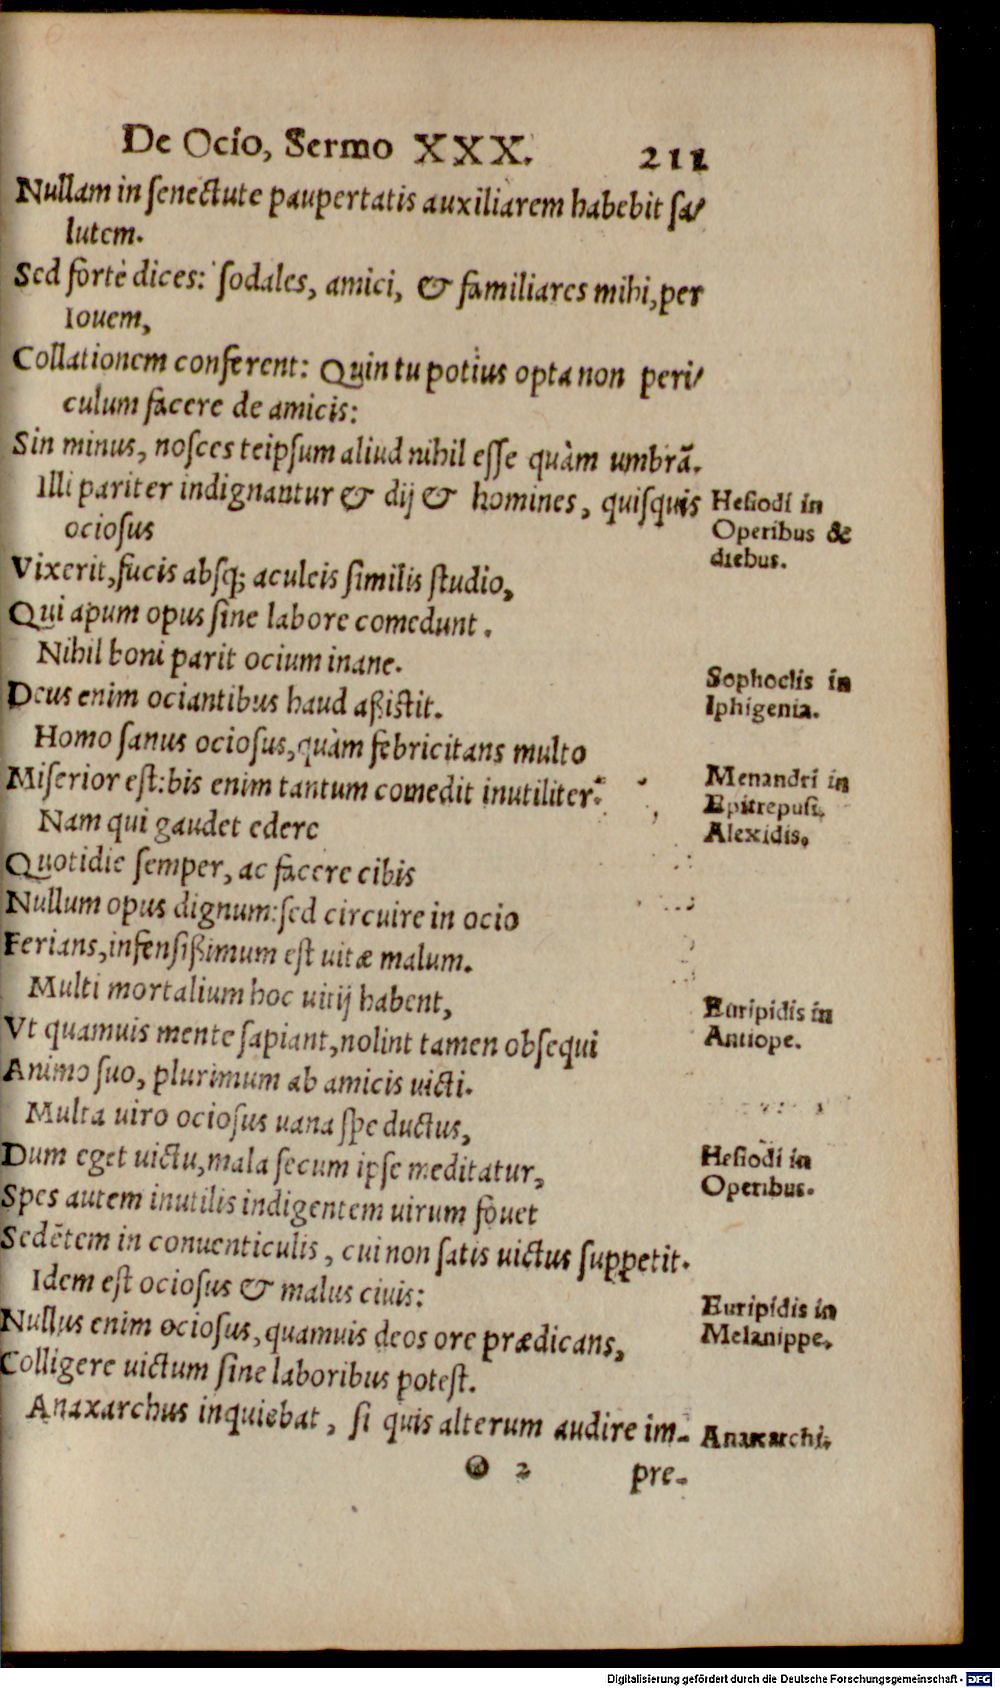 De Ocio, Sermo XXX. 211
Nullam in ſenectute paupertatis auxiliarem habebit ſa/
lutem.
Sed fortè dices: ſodales, amici, & familiares mihi, per
Iouem,
Collationem conferent: Quin tu potius opta non peri/
culum facere de amicis:
Sin minus, noſces teipſum aliud nihil eſſe quàm umbrã.
Illi pariter indignantur & dij & homines, quiſquis
ocioſus
Hesiodi in
Operibus &
diebus.
Vixerit, fucis abſq; aculeis ſimilis ſtudio,
Qui apum opus ſine labore comedunt.
Nihil boni parit ocium inane.
Sophoclis in
Iphigenia.
Deus enim ociantibus haud aßiſtit.
Homo ſanus ocioſus, quàm febricitans multo
Miſerior eſt: bis enim tantum comedit inutiliter.
Menandri in
Epitrepusi.
Nam qui gaudet edere
Alexidis.
Quotidie ſemper, ac facere cibis
Nullum opus dignum: ſed circuire in ocio
Ferians, infenſißimum eſt uitæ malum.
Multi mortalium hoc uitij habent,
Euripidis in
Antiope.
Vt quamuis mente ſapiant, nolint tamen obſequi
Animo ſuo, plurimum ab amicis uicti.
Multa uiro ocioſus uana ſpe ductus,
Dum eget uictu, mala ſecum ipſe meditatur,
Hesiodi in
Operibus.
Spes autem inutilis indigentem uirum fouet
Sedētem in conuenticulis, cui non ſatis uictus ſuppetit.
Idem eſt ocioſus & malus ciuis:
Euripidis in
Melanippe.
Nullus enim ocioſus, quamuis deos ore prædicans,
Colligere uictum ſine laboribus poteſt.
Anaxarchus inquiebat, ſi quis alterum audire im-
Anaxarchi.
2 pre-
Digitalisierung gefördert durch die Deutsche Forschungsgemeinschaft - DFG